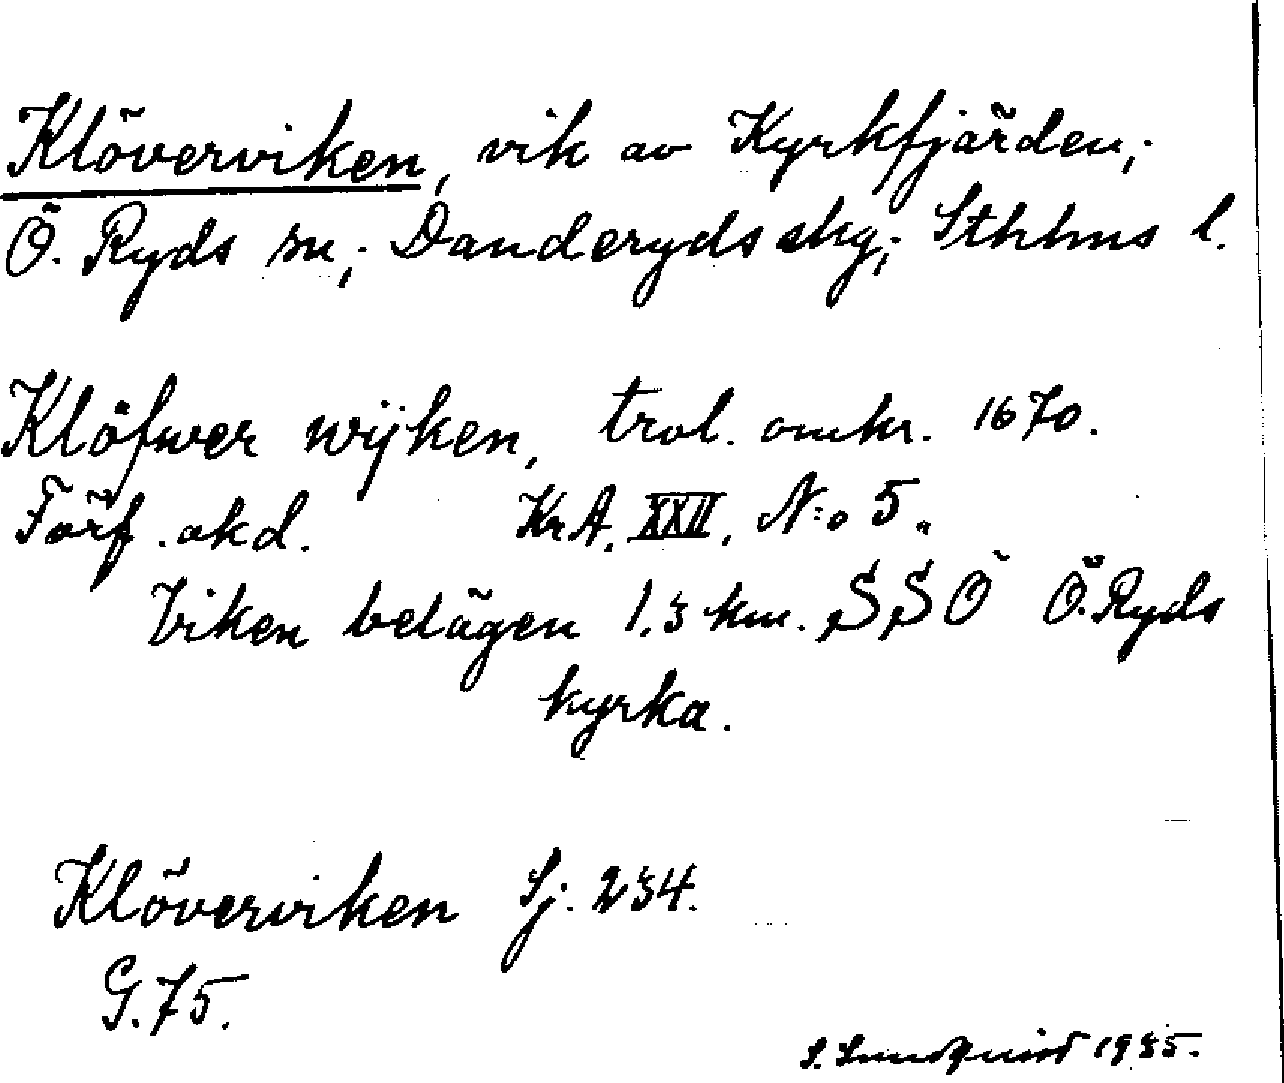 Klöverviken, vik av Kyrkfjärden,;
Ö. Ryds sn,; Danderyds skg,; Sthlms l.
Klöfwer wijken, trol. omkr. 1670.
Förf. okd. KrA. XXII. N:o 5.
Viken belägen 1.3 km. SSÖ Ö. Ryds
kyrka.
Klöverviken Sj. 234.
G. 75.
S. Lundquist 1935.